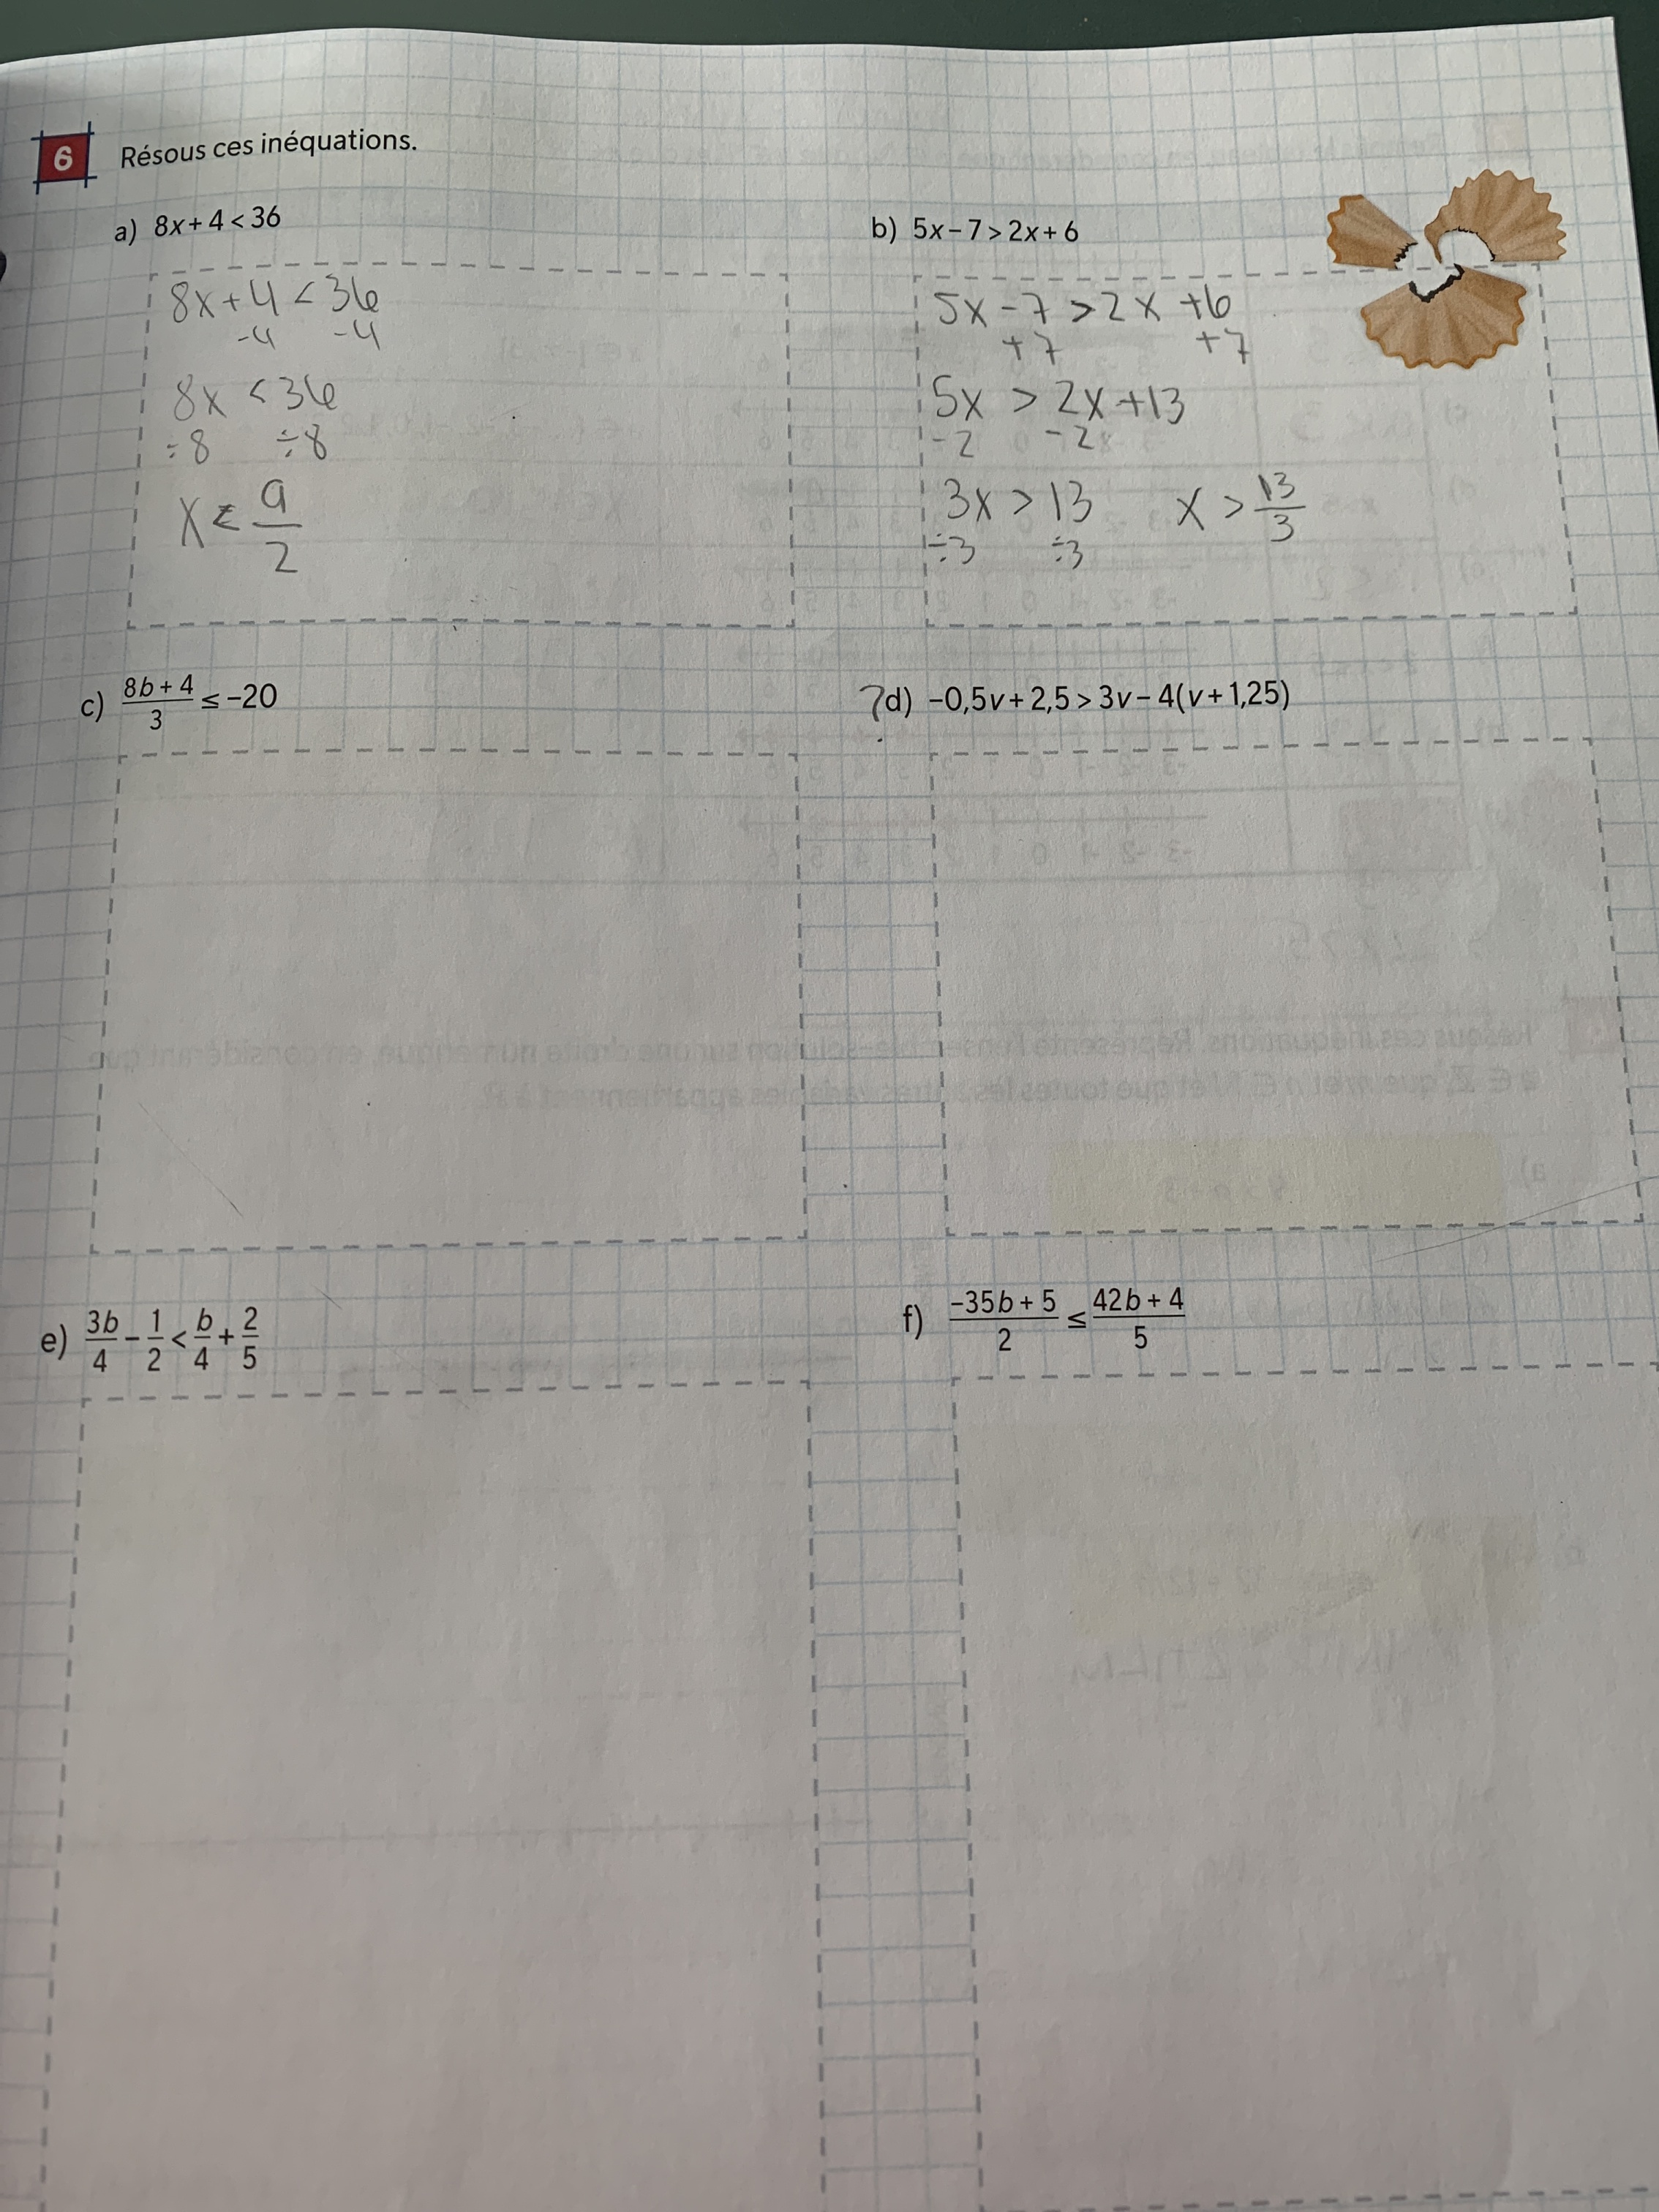 6 Résous ces inéquations.
a) 8x + 4 < 36
b) 5x – 7 > 2x + 6
8x + 4 < 36
-4 -4
8x < 36
÷8 ÷8
x < 9/2
5x - 7 > 2x + 6
+7 +7
5x > 2x + 13
-2 -2
3x > 13 x > 13/3
÷3 ÷3
c) (8b + 4)/3 ≤ –20
?d) –0,5v + 2,5 > 3v – 4(v + 1,25)
e) 3b/4 – 1/2 < b/4 + 2/5
f) (–35b + 5)/2 ≤ (42b + 4)/5